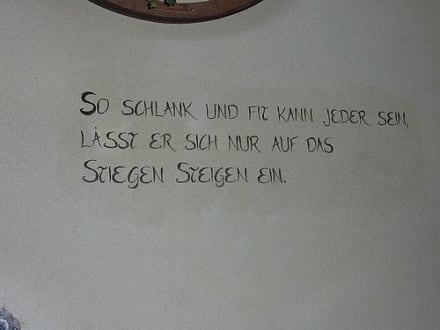 SO SCHLANK UND FIT KANN JEDER SEIN,
LÄSST ER SICH NUR AUF DAS
STIEGEN STEIGEN EIN.